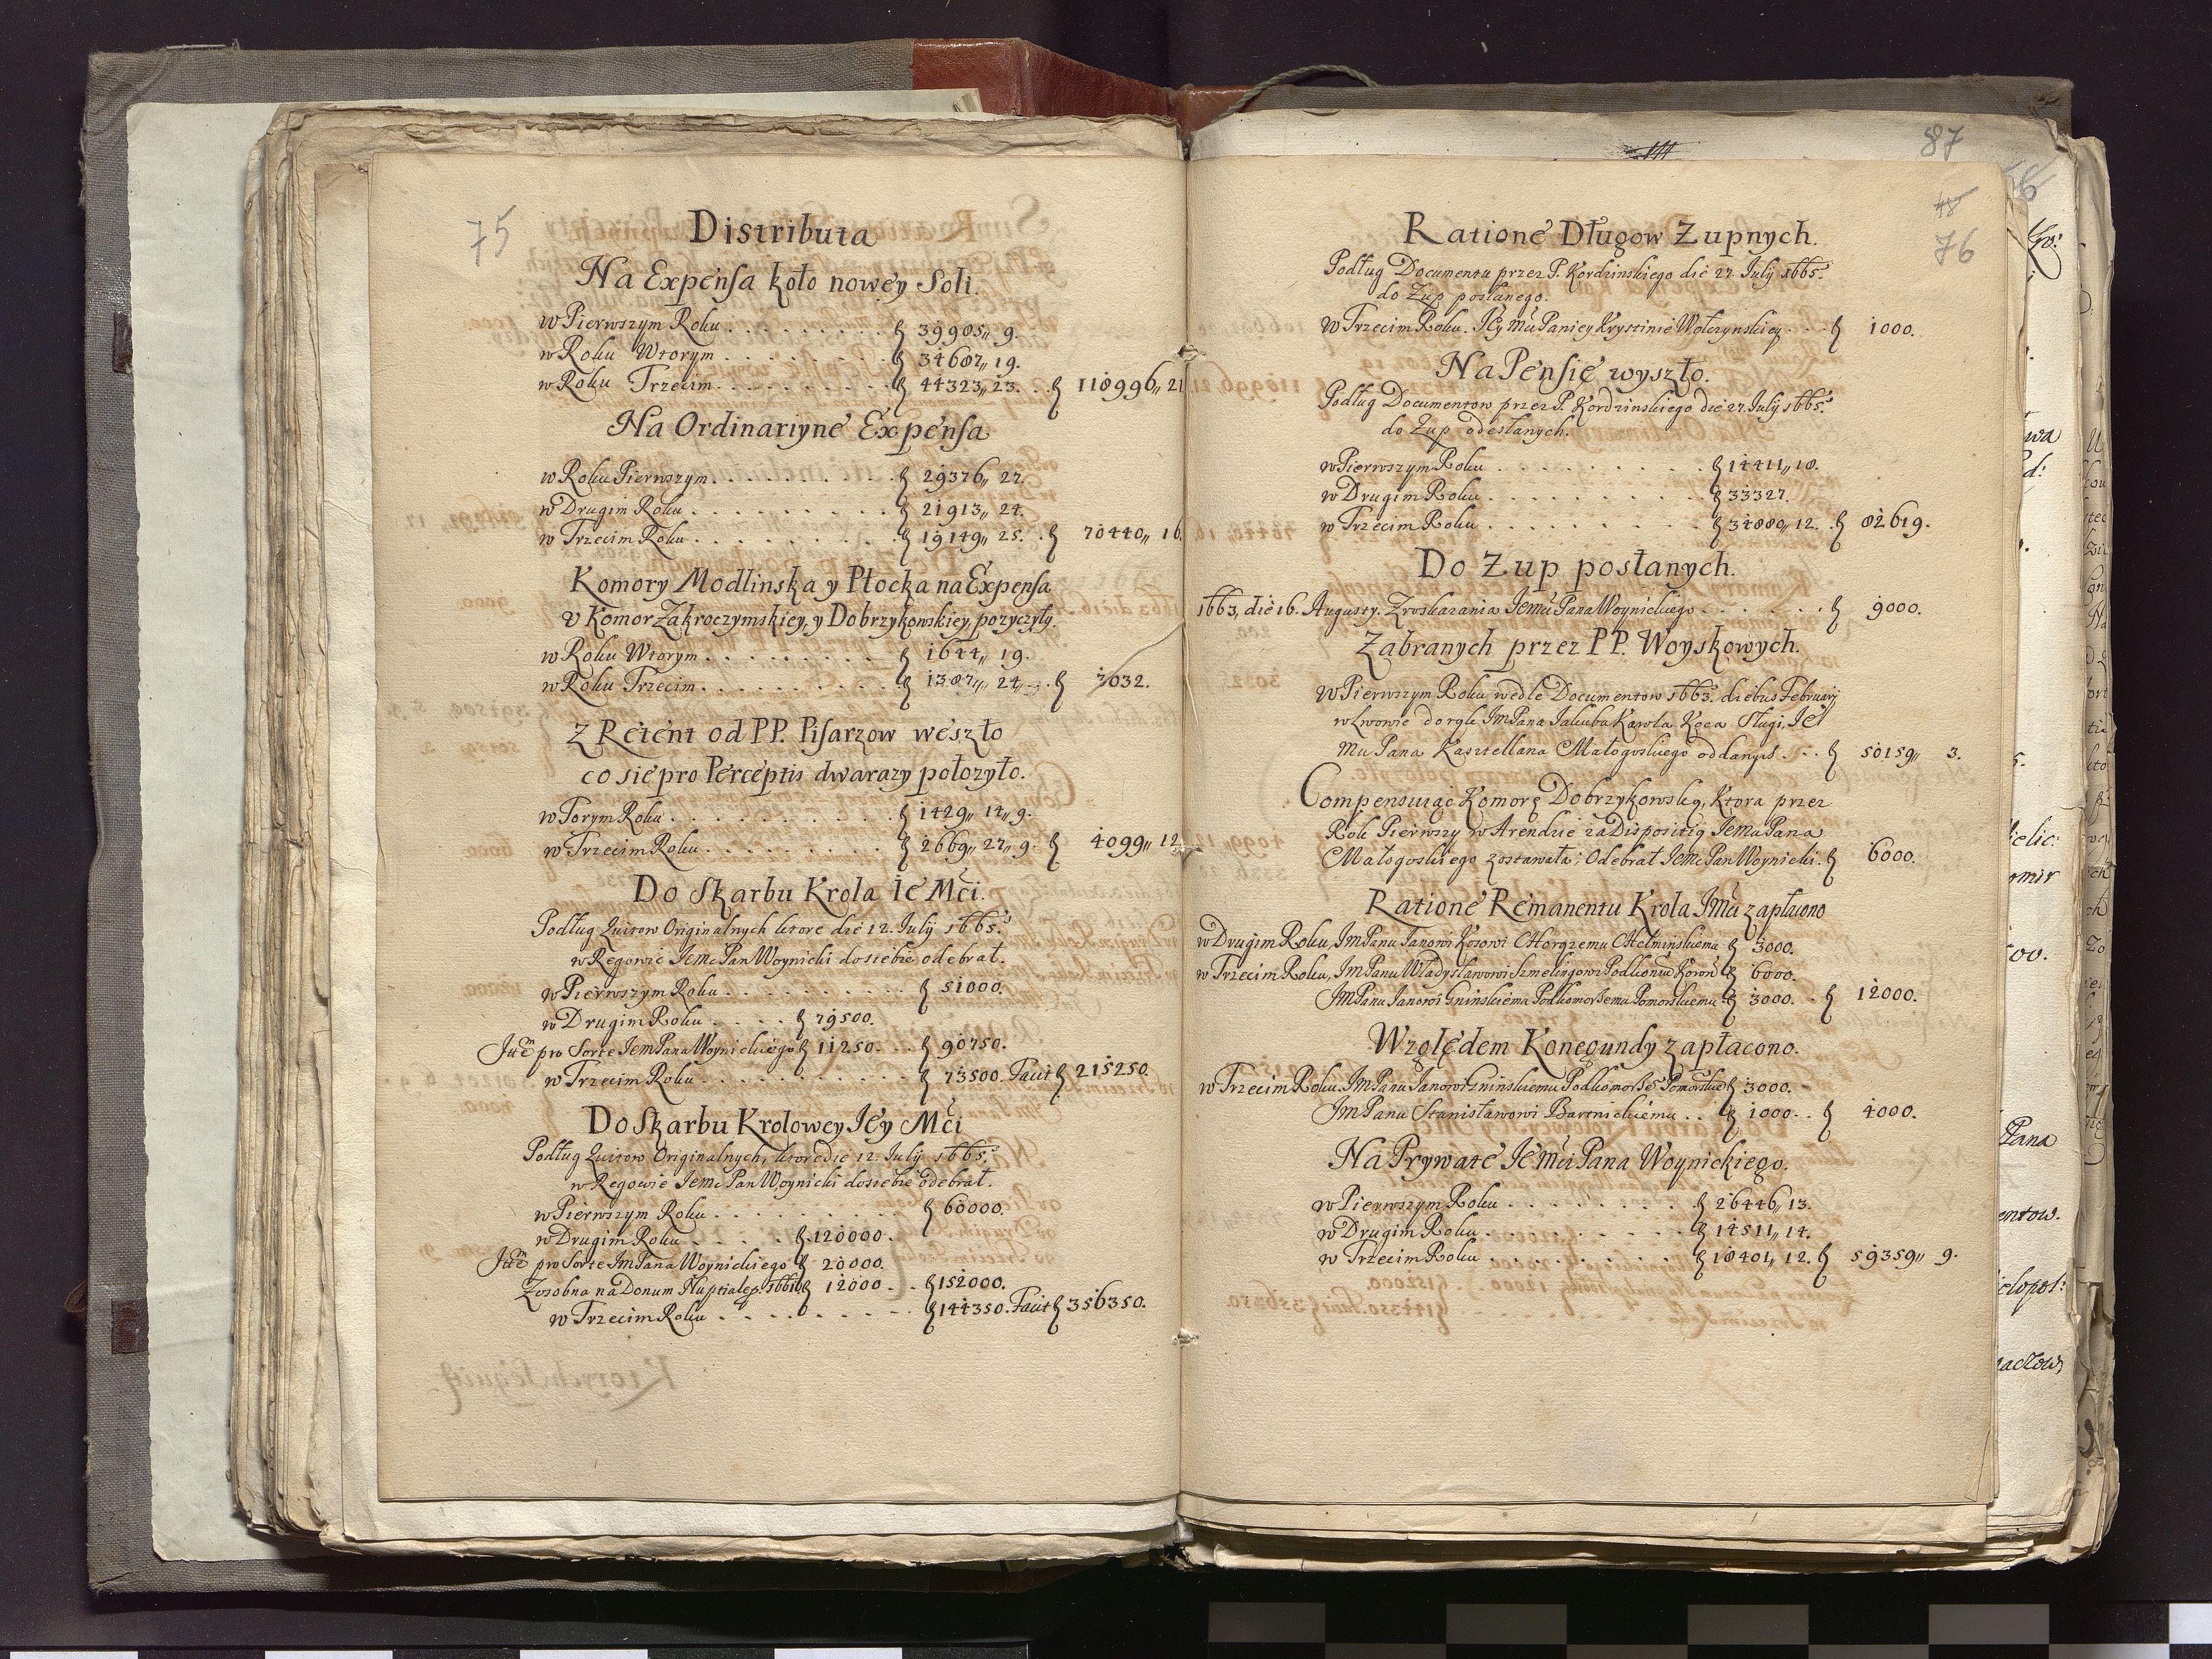 75
Distributa
Na Expensa koło nowey Soli.
w Pierwszym Roku . . . . . . . . 39985,, 9.
w Roku Wtorym . . . . . . . . 34687,, 19.
w Roku Trzecim . . . . . . . . 44323,, 23. . . 118996,, 21
Na Ordinariyne Expensa
w Roku Pierwszym . . . . . . . . 29376,, 27.
w Drugim Roku . . . . . . . . 21913,, 24.
w Trzecim Roku . . . . . . . . 19149,, 25. . 70440,, 16.
Komory Modlinska y Płocka na Expensa
v Komor Zakroczymskiey, y Dobrzykowskiey, pozyczyły.
w Roku Wtorym . . . . . . . . 1644,, 19.
w Roku Trzecim . . . . . . . . 1387,, 24,, . . 3032.
Z Retent od PP. Pisarzow weszło
co sie pro Perceptis dwa razy położyło.
w Torym Roku . . . . . . . . 1429,, 14,, 9.
w Trzecim Roku . . . . . . . . 2669,, 27,, 9. 4099,, 12
Do Skarbu Krola Ie Mci.
Podług Quitow Originalnych ktore die 12. July 1665.
w Regowie Iemc Pan Woynicki do siebie odebrał.
w Pierwszym Roku . . . . . . . . 51000.
w Drugim Roku . . . . 79500.
Item pro Sorte Iem Pana Woynickiego 11250. . . 90750.
w Trzecim Roku . . . . . . . . 73500. Facit 215250.
Do Skarbu Krolowey Iey Mci
Podług Quitow Originalnych, ktore die 12. July 1665.
w Regowie Iemc Pan Woynicki do siebie odebrał.
w Pierwszym Roku . . . . . . . . 60000.
w Drugim Roku . . . . . 120000.
Item pro Sorte Im Pana Woynickiego 20000.
Zosobna na Donum Nuptiale p. 1661 12000 . . 152000.
w Trzecim Roku . . . . . . . . 144350. Facit 356350.
87
76
Ratione Długow Zupnych.
Podług Documentu przez P. Kordzinskiego die 27. July 1665.
do Zup posłanego.
w Trzecim Roku. Iey Mci Paniey Krystinie Wolczynskiey . . 1000.
Na Pensie wyszło.
Podług Documentow przez P. Kordzinskiego die 27. July 1665.
do Zup odesłanych.
w Pierwszym Roku . . . . . . . . 14411,, 18.
w Drugim Roku . . . . . . . . 33327.
w Trzecim Roku . . . . . . . . 34880,, 12. . 82619.
Do Zup posłanych.
1663, die 16. Augusty. Z roskazania Iemci Pana Woynickiego . . . . . . 9000.
Zabranych przez PP. Woyskowych.
w Pierwszym Roku, wedle Documentow 1663. diebus February
w Lwowie do rąk Im Pana Iakuba Karola Sługi, Ie
Mci Pana Kasztellana Małogoskiego oddanych . . . 50159,, 3.
Compensuiąc Komorę Dobrzykowską, Ktora przez
Rok Pierwszy w Arendzie za Dispositią Iemci Pana
Małogoskiego zostawała; Odebrał Iemc Pan Woynicki. 6000.
Ratione Remanentu Krola I Mci zapłacono
w Drugim Roku, Im Panu Ianowi Kosowi Chorązemu Chełminskiemu 3000.
w Trzecim Roku, Im Panu Władysławowi Szmelingowi Podkoniu Koron 6000.
Im Panu Ianowi Gninskiemu Podkomorzemu Pomorskiemu 3000. . 12000.
Względem Konegundy zapłacono.
w Trzecim Roku. Im Panu Ianowi Gninskiemu Podkomorze Pomorskie 3000.
Im Panu Stanisławowi Bartnickiemu . . 1000. . 4000.
Na Prywate Ie Mci Pana Woynickiego.
w Pierwszym Roku . . . . . . . 26446,, 13.
w Drugim Roku . . . . . . . . 14511,, 14.
w Trzecim Roku . . . . . . . . 18401,, 12. 59359,, 9.